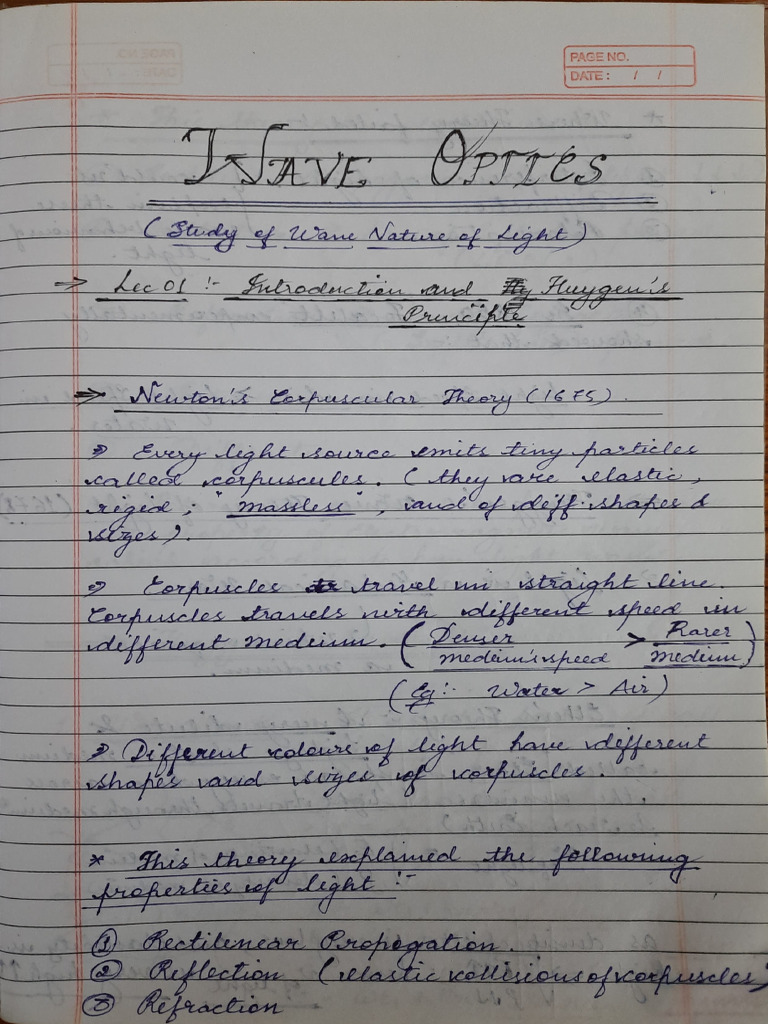 PAGE NO.
DATE: / /
WAVE OPTICS
(Study of Wave Nature of Light)
⇒ Lec 01 :- Introduction and Huygen's
Principle
⇒ Newton's Corpuscular Theory (1675).
⇒ Every light source emits tiny particles
called corpuscules. (they are elastic,
rigid, "massless", and of diff. shapes &
sizes).
⇒ Corpuscles travel in straight line.
Corpuscles travels with different speed in
different medium. (Denser medium's speed > Rarer medium)
(Eg:- Water > Air)
⇒ Different colours of light have different
shapes and sizes of corpuscles.
* This theory explained the following
properties of light :-
① Rectilenear Propogation.
② Reflection (elastic collisions of corpuscles)
③ Refraction